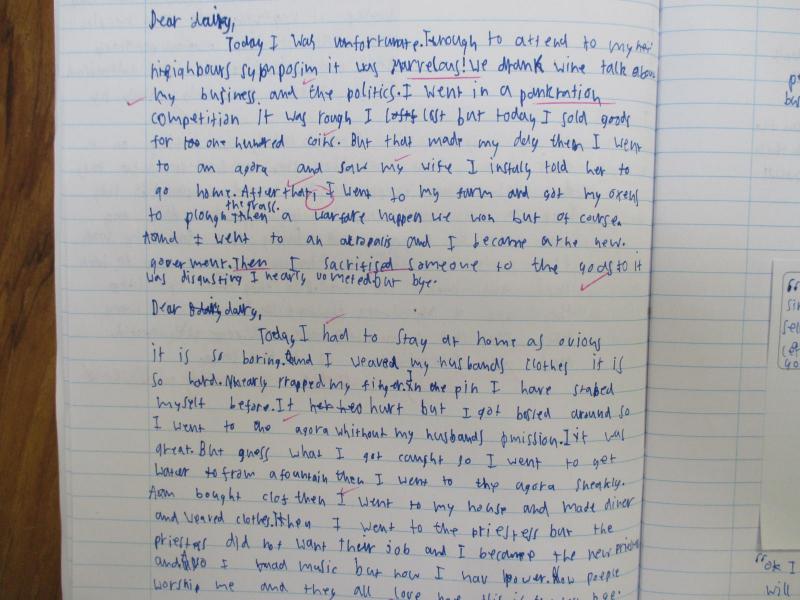 Dear dairy,
Today I was unfortunate. Enough to attend to my
neighbours symposim it was marvelous! we drank wine talk about
my business and the politics. I went in a pankration
competition It was rough I lost but today I sold goods
for one hundred coins. But that made my day then I went
to an agora and saw my wife I instaly told her to
go home. After that, I went to my farm and got my oxens
to plough the grass. then a warfare happen we won but of course.
and I went to an akropalis and I became the new.
goverment. Then I sacrifised someone to the gods to it
was disgusting I nearly vometed but bye.
Dear dairy,
Today, I had to stay at home as ovious
it is so boring. and I weaved my husbands clothes it is
so hard. Nearly my finger. In one pin I have stabed
myself before. It hurt but I got bossed around so
I went to the agora whithout my husbands pmission. It was
great. But guess what I got caught so I went to get
water from a fountain then I went to the agora sneakly.
bought then I went to my house and made diner
and veaved clothes. then I went to the priestess but the
priestess did not want their job and I became the new
and I mad music but now I hav power. Now people
worship me and they all love
"
si
sell
"ok I
will